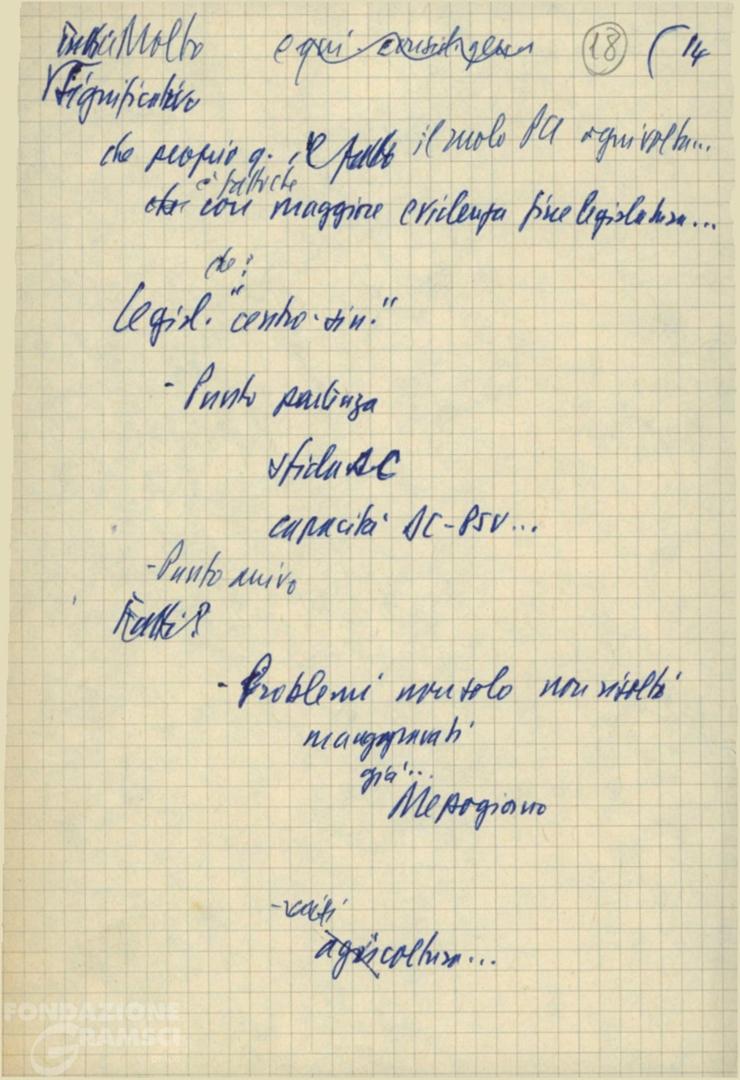 Molto 18 (14
Significativo
che proprio q. il fatto il ruolo PCI ogni volta...
è fatto che
con maggiore evidenza fine legislatura...
che:
Legisl. "centro-sin."
- Punto partenza
sfida DC
capacità DC-PSU...
- Punto arrivo
Fatti?
- Problemi non solo non risolti
ma aggravati
già...
Mezzogiorno
agricoltura...
FONDAZIONE
GRAMSCI